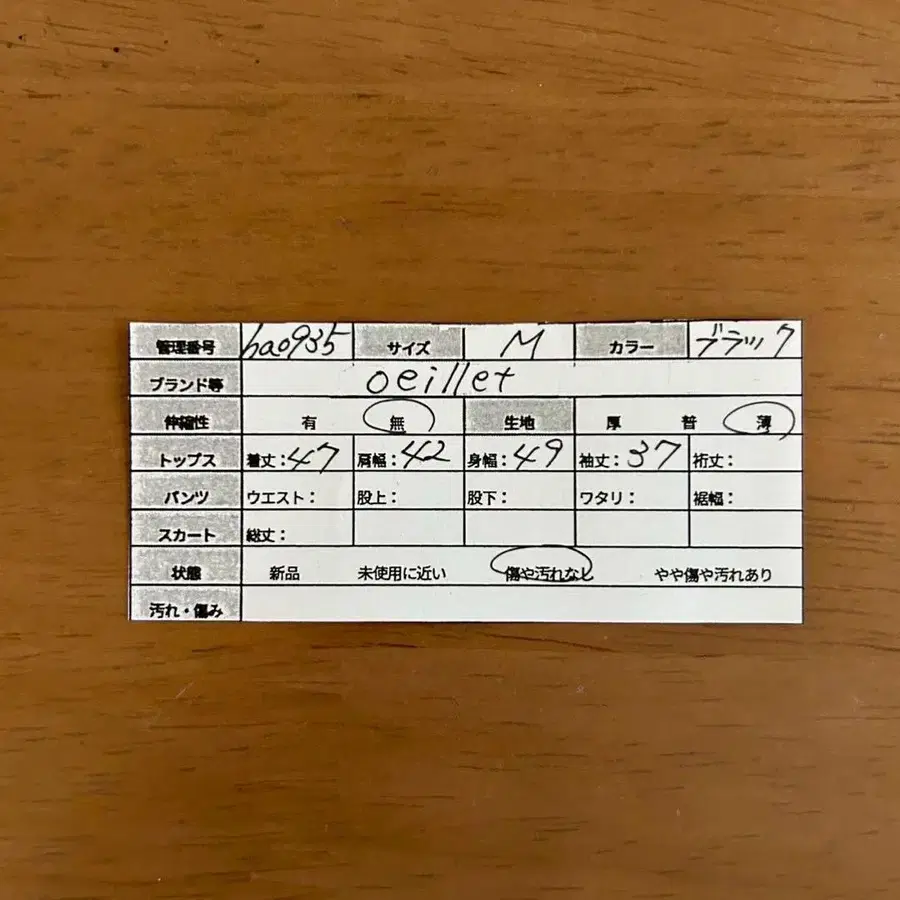 管理番号 hao935 サイズ M カラー ブラック
ブランド等 oeillet
伸縮性 有 無 生地 厚 普 薄
トップス 着丈:47 肩幅:42 身幅:49 袖丈:37 裄丈:
パンツ ウエスト: 股上: 股下: ワタリ: 裾幅:
スカート 総丈:
状態 新品 未使用に近い 傷や汚れなし やや傷や汚れあり
汚れ・傷み